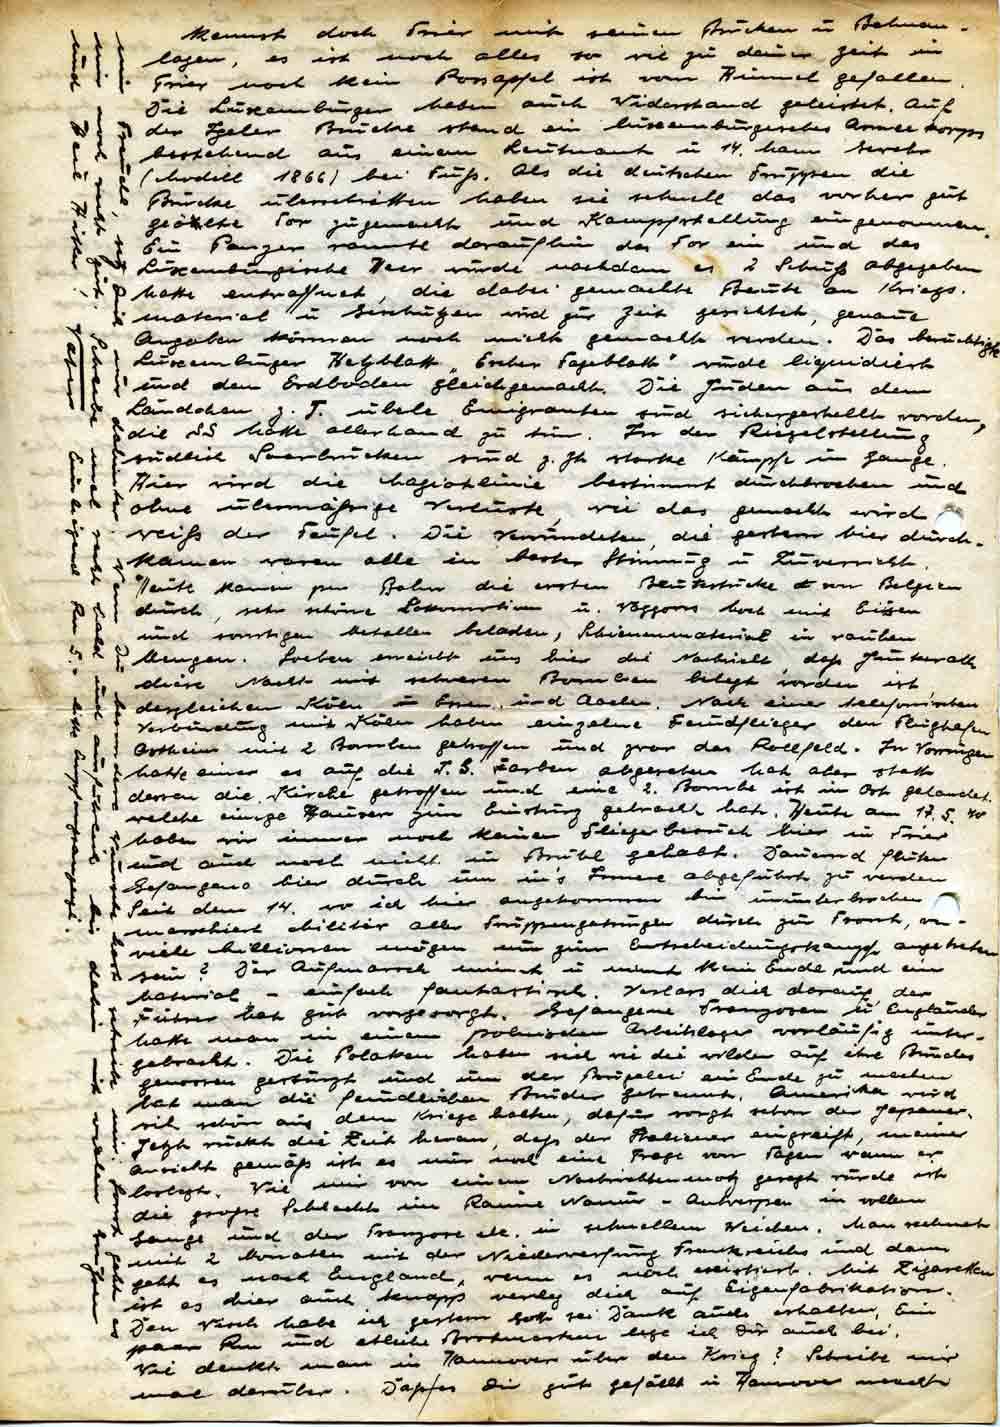 Kennst doch Trier mit seinen Brücken u Bahnan-
lagen, es ist noch alles so wie zu deiner Zeit in
Trier noch kein Rossapfel ist vom Himmel gefallen.
Die Luxemburger haben auch Widerstand geleistet. Auf
der Igeler Brücke stand ein luxemburgisches Armeekorps
bestehend aus einem Leutnant u 14. Mann Gewehr
(Modell 1866) bei Fuß. Als die deutschen Truppen die
Brücke überschritten haben sie schnell das vorher gut
geölte Tor zugemacht und Kampfstellung eingenommen.
Ein Panzer rannte daraufhin das Tor ein und das
Luxemburgische Heer wurde nachdem es 2 Schuß abgegeben
hatte entwaffnet, die dabei gemachte Beute an Kriegs-
material u Geschützen wird zur Zeit gesichtet, genaue
Angaben können noch nicht gemacht werden. Das berüchtigte
Luxemburger Hetzblatt „Escher Tageblatt" wurde liquidiert
und dem Erdboden gleichgemacht. Die Juden aus dem
Ländchen z. T. übele Emigranten sind sichergestellt worden,
die SS hatte allerhand zu tun. In der Riegelstellung
südlich Saarbrücken sind z. Zt starke Kämpfe im Gange.
Hier wird die Maginotlinie bestimmt durchbrochen und
ohne übermässige Verluste, wie das gemacht wird
weiß der Teufel. Die Verwundeten, die gestern hier durch-
kamen waren alle in bester Stimmung u Zuversicht.
Heute kamen per Bahn die ersten Beutestücke von Belgien
durch, sehr schöne Lokomotiven u. Waggons hoch mit Eisen
und sonstigen Metallen beladen, Schienenmaterial in rauhen
Mengen. Soeben erreicht uns hier die Nachricht, daß Jünkerath
diese Nacht mit schweren Bomben belegt worden ist
desgleichen Köln – Essen, und Aachen. Nach einer telefonischen
Verbindung mit Köln haben einzelne Feindflieger den Flughafen
Ostheim mit 2 Bomben getroffen und zwar das Rollfeld. In Worringen
hatte einer es auf die I. G. Farben abgesehen hat aber statt
dessen die Kirche getroffen und eine 2. Bombe ist in Ort gelandet.
welche einige Häuser zum Einsturz gebracht hat. Heute am 17.5.40
haben wir immer noch keinen Fliegerbesuch hier in Trier
und auch noch nicht in Brühl gehabt. Dauernd fluten
Gefangene hier durch um in's Innere abgeführt zu werden
Seit dem 14. wo ich hier angekommen bin ununterbrochen
marschiert Militär aller Truppengattungen durch zur Front, wie-
viele Millionen mögen nun zum Entscheidungskampf angetreten
sein? Der Aufmarsch nimmt u nimmt kein Ende und ein
Material – einfach fantastisch. Verlass dich darauf der
Führer hat gut vorgesorgt. Gefangene Franzosen u Engländer
hatte man in einem polnischen Arbeitslager vorläufig unter-
gebracht. Die Polacken haben sich wie die wilden auf ihre Bundes
genossen gestürzt und um der Prügelei ein Ende zu machen
hat man die feindlichen Brüder getrennt. Amerika wird
sich schön aus dem Kriege halten, dafür sorgt schon der Japaner.
Jetzt rückt die Zeit heran, daß der Italiener eingreift, meiner
Ansicht gemäß ist es nur noch eine Frage von Tagen wann er
loslegt. Wie mir von einem Nachrichtenmotz gesagt wurde ist
die große Schlacht im Raume Namur – Antwerpen in vollem
Gange und der Franzose etc. in schnellem Weichen. Man rechnet
mit 2 Monaten mit der Niederwerfung Frankreichs und dann
geht es nach England, wenn es noch existiert. Mit Zigaretten
ist es hier auch knapp verleg dich auf Eigenfabrikation.
Den Wisch habe ich gestern Gott sei Dank auch erhalten. Ein
paar Rm und etliche Brotmarken lege ich dir auch bei.
Wie denkt man in Hannover über den Krieg? Schreibe mir
mal darüber. Daß es Dir gut gefällt in Hannover macht
mir Freude, Wenn Du besondere Wünsche hast schreib mir, sonst geht es
mir noch recht gut. Schreibe mal recht bald und ausführlich bis dahin
und Heil Hitler! Vater Einliegend Rm 5.–